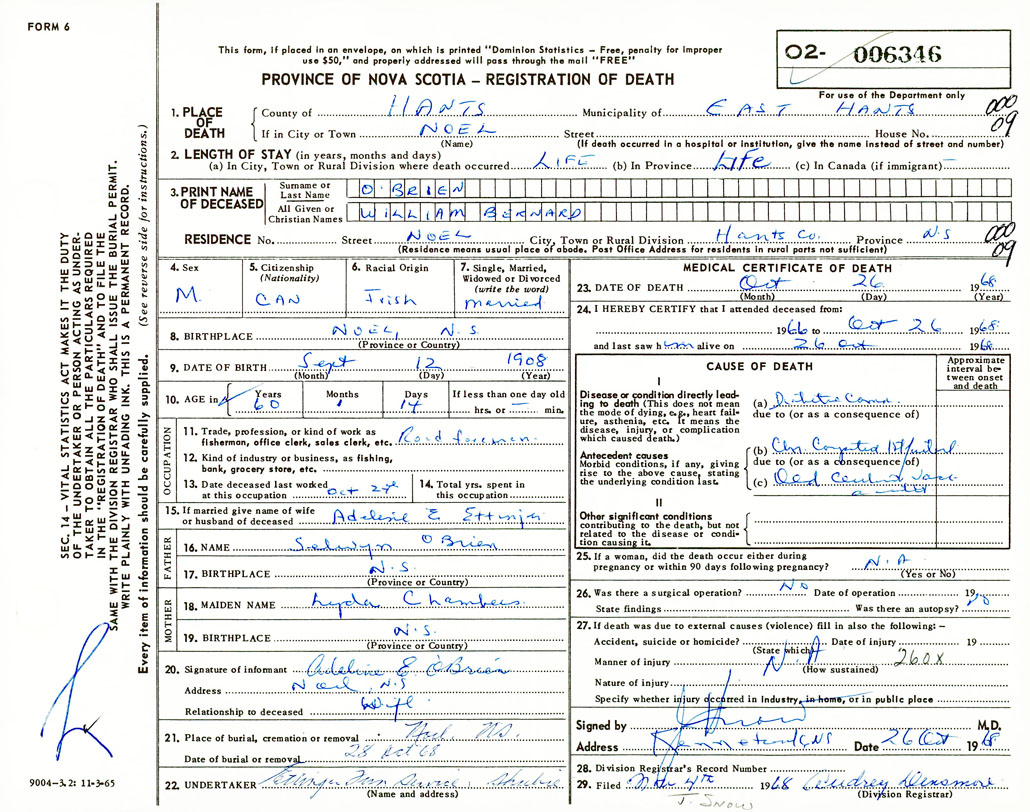 FORM 6
This form, if placed in an envelope, on which is printed "Dominion Statistics – Free, penalty for improper
use $50," and properly addressed will pass through the mail "FREE"
O2- 006346
For use of the Department only
PROVINCE OF NOVA SCOTIA – REGISTRATION OF DEATH
1. PLACE OF DEATH
County of HANTS Municipality of EAST HANTS 000
If in City or Town NOEL Street House No. 09
(Name) (If death occurred in a hospital or institution, give the name instead of street and number)
2. LENGTH OF STAY (in years, months and days)
(a) In City, Town or Rural Division where death occurred LIFE (b) In Province Life (c) In Canada (if immigrant) –
3. PRINT NAME OF DECEASED
Surname or Last Name O'BRIEN
All Given or Christian Names WILLIAM BERNARD
RESIDENCE No. Street NOEL City, Town or Rural Division Hants Co. Province N.S 000
(Residence means usual place of abode. Post Office Address for residents in rural parts not sufficient) 09
4. Sex M.
5. Citizenship (Nationality) CAN
6. Racial Origin Irish
7. Single, Married, Widowed or Divorced (write the word) married
8. BIRTHPLACE NOEL, N.S.
(Province or Country)
9. DATE OF BIRTH Sept 12 1908
(Month) (Day) (Year)
10. AGE in Years 60 Months 1 Days 14 If less than one day old hrs. or – min.
OCCUPATION
11. Trade, profession, or kind of work as
fisherman, office clerk, sales clerk, etc. Road foreman.
12. Kind of industry or business, as fishing,
bank, grocery store, etc.
13. Date deceased last worked
at this occupation Oct 24th
14. Total yrs. spent in
this occupation
15. If married give name of wife
or husband of deceased E Ettinger
FATHER
16. NAME Selwyn O'Brien
17. BIRTHPLACE N.S.
(Province or Country)
MOTHER
18. MAIDEN NAME Lyda Chambers.
19. BIRTHPLACE N.S.
(Province or Country)
20. Signature of informant Adeline E. O'Brien
Address Noel, N.S
Relationship to deceased Wife
21. Place of burial, cremation or removal Noel NS.
Date of burial or removal 28 Oct 68
22. UNDERTAKER Ettinger Fun Service Shubie
(Name and address)
MEDICAL CERTIFICATE OF DEATH
23. DATE OF DEATH Oct 26 1968
(Month) (Day) (Year)
24. I HEREBY CERTIFY that I attended deceased from:
1966 to Oct 26 1968
and last saw him alive on 26 Oct 1968
CAUSE OF DEATH
Approximate interval between onset and death
I
Disease or condition directly leading
to death (This does not mean
the mode of dying, e.g., heart failure,
asthenia, etc. It means the
disease, injury, or complication
which caused death.)
(a) Diabetic Coma
due to (or as a consequence of)
Antecedent causes
Morbid conditions, if any, giving
rise to the above cause, stating
the underlying condition last.
(b)
due to (or as a consequence of)
(c) Old
II
Other significant conditions
contributing to the death, but not
related to the disease or condition
causing it.
25. If a woman, did the death occur either during
pregnancy or within 90 days following pregnancy? N.A
(Yes or No)
26. Was there a surgical operation? No Date of operation 19
State findings Was there an autopsy? No
27. If death was due to external causes (violence) fill in also the following: –
Accident, suicide or homicide? Date of injury 19
(State which)
Manner of injury N.A 260X
(How sustained)
Nature of injury
Specify whether injury occurred in Industry, in home, or in public place
Signed by M.D.
Address Date 26 Oct 1968
28. Division Registrar's Record Number
29. Filed Nov 4th 1968 Audrey Densmore
(Division Registrar)
J. SNOW
SEC. 14 – VITAL STATISTICS ACT MAKES IT THE DUTY
OF THE UNDERTAKER OR PERSON ACTING AS UNDERTAKER
TO OBTAIN ALL THE PARTICULARS REQUIRED
IN THE "REGISTRATION OF DEATH" AND TO FILE THE
SAME WITH THE DIVISION REGISTRAR WHO SHALL ISSUE THE BURIAL PERMIT.
WRITE PLAINLY WITH UNFADING INK. THIS IS A PERMANENT RECORD.
Every item of information should be carefully supplied. (See reverse side for instructions.)
9004–3.2: 11-3-65